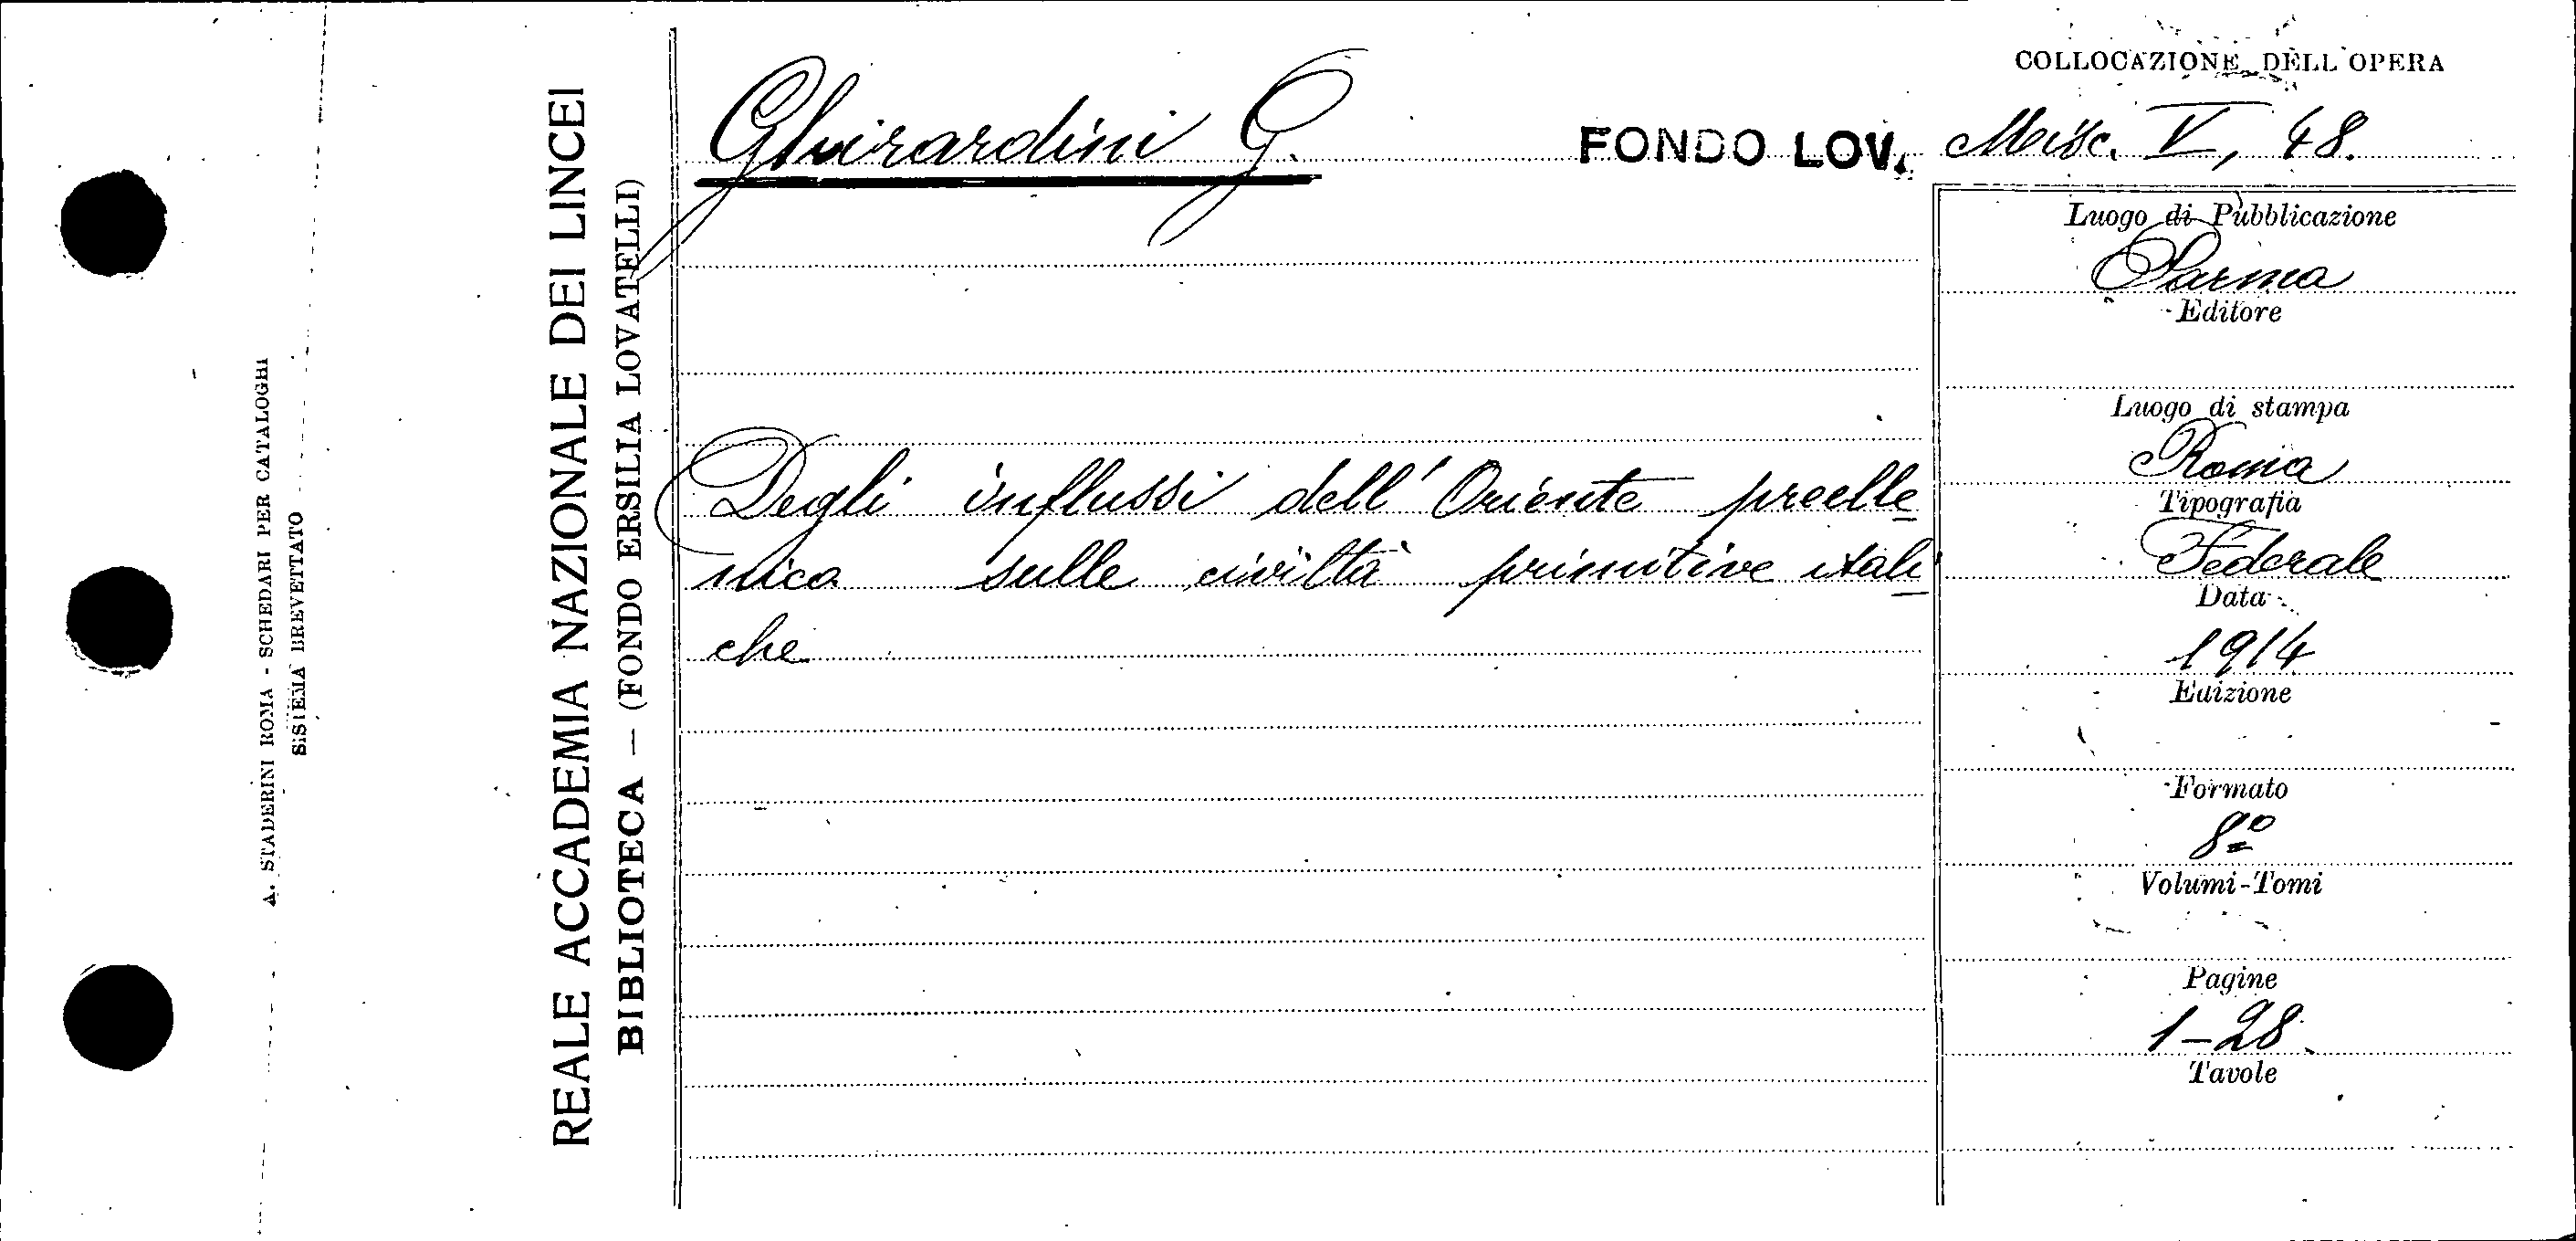 A. STADERINI ROMA - SCHEDARI PER CATALOGHI
SISTEMA BREVETTATO
REALE ACCADEMIA NAZIONALE DEI LINCEI
BIBLIOTECA — (FONDO ERSILIA LOVATELLI)
Ghirardini G.
FONDO LOV.
COLLOCAZIONE DELL'OPERA
Misc. V, 48.
Degli influssi dell'Oriente preelle
nico sulle civiltà primitive itali
che
Luogo di Pubblicazione
Parma
Editore
Luogo di stampa
Roma
Tipografia
Federale
Data
1914
Edizione
Formato
8º
Volumi-Tomi
Pagine
1-28
Tavole